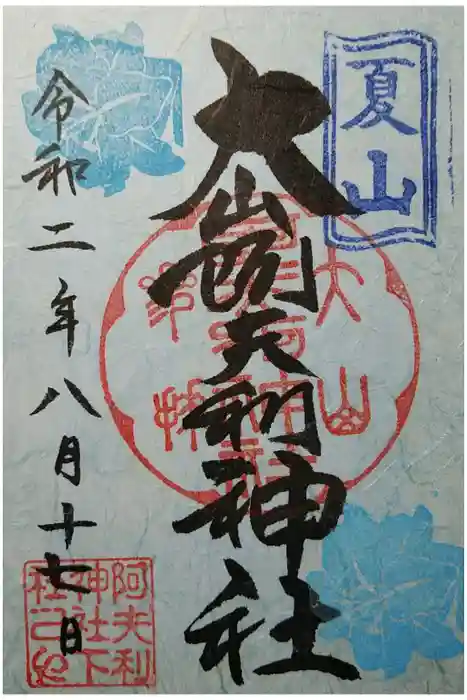 夏山
大山阿夫利神社
令和二年八月十七日
大山
阿夫利
神社下
社之印